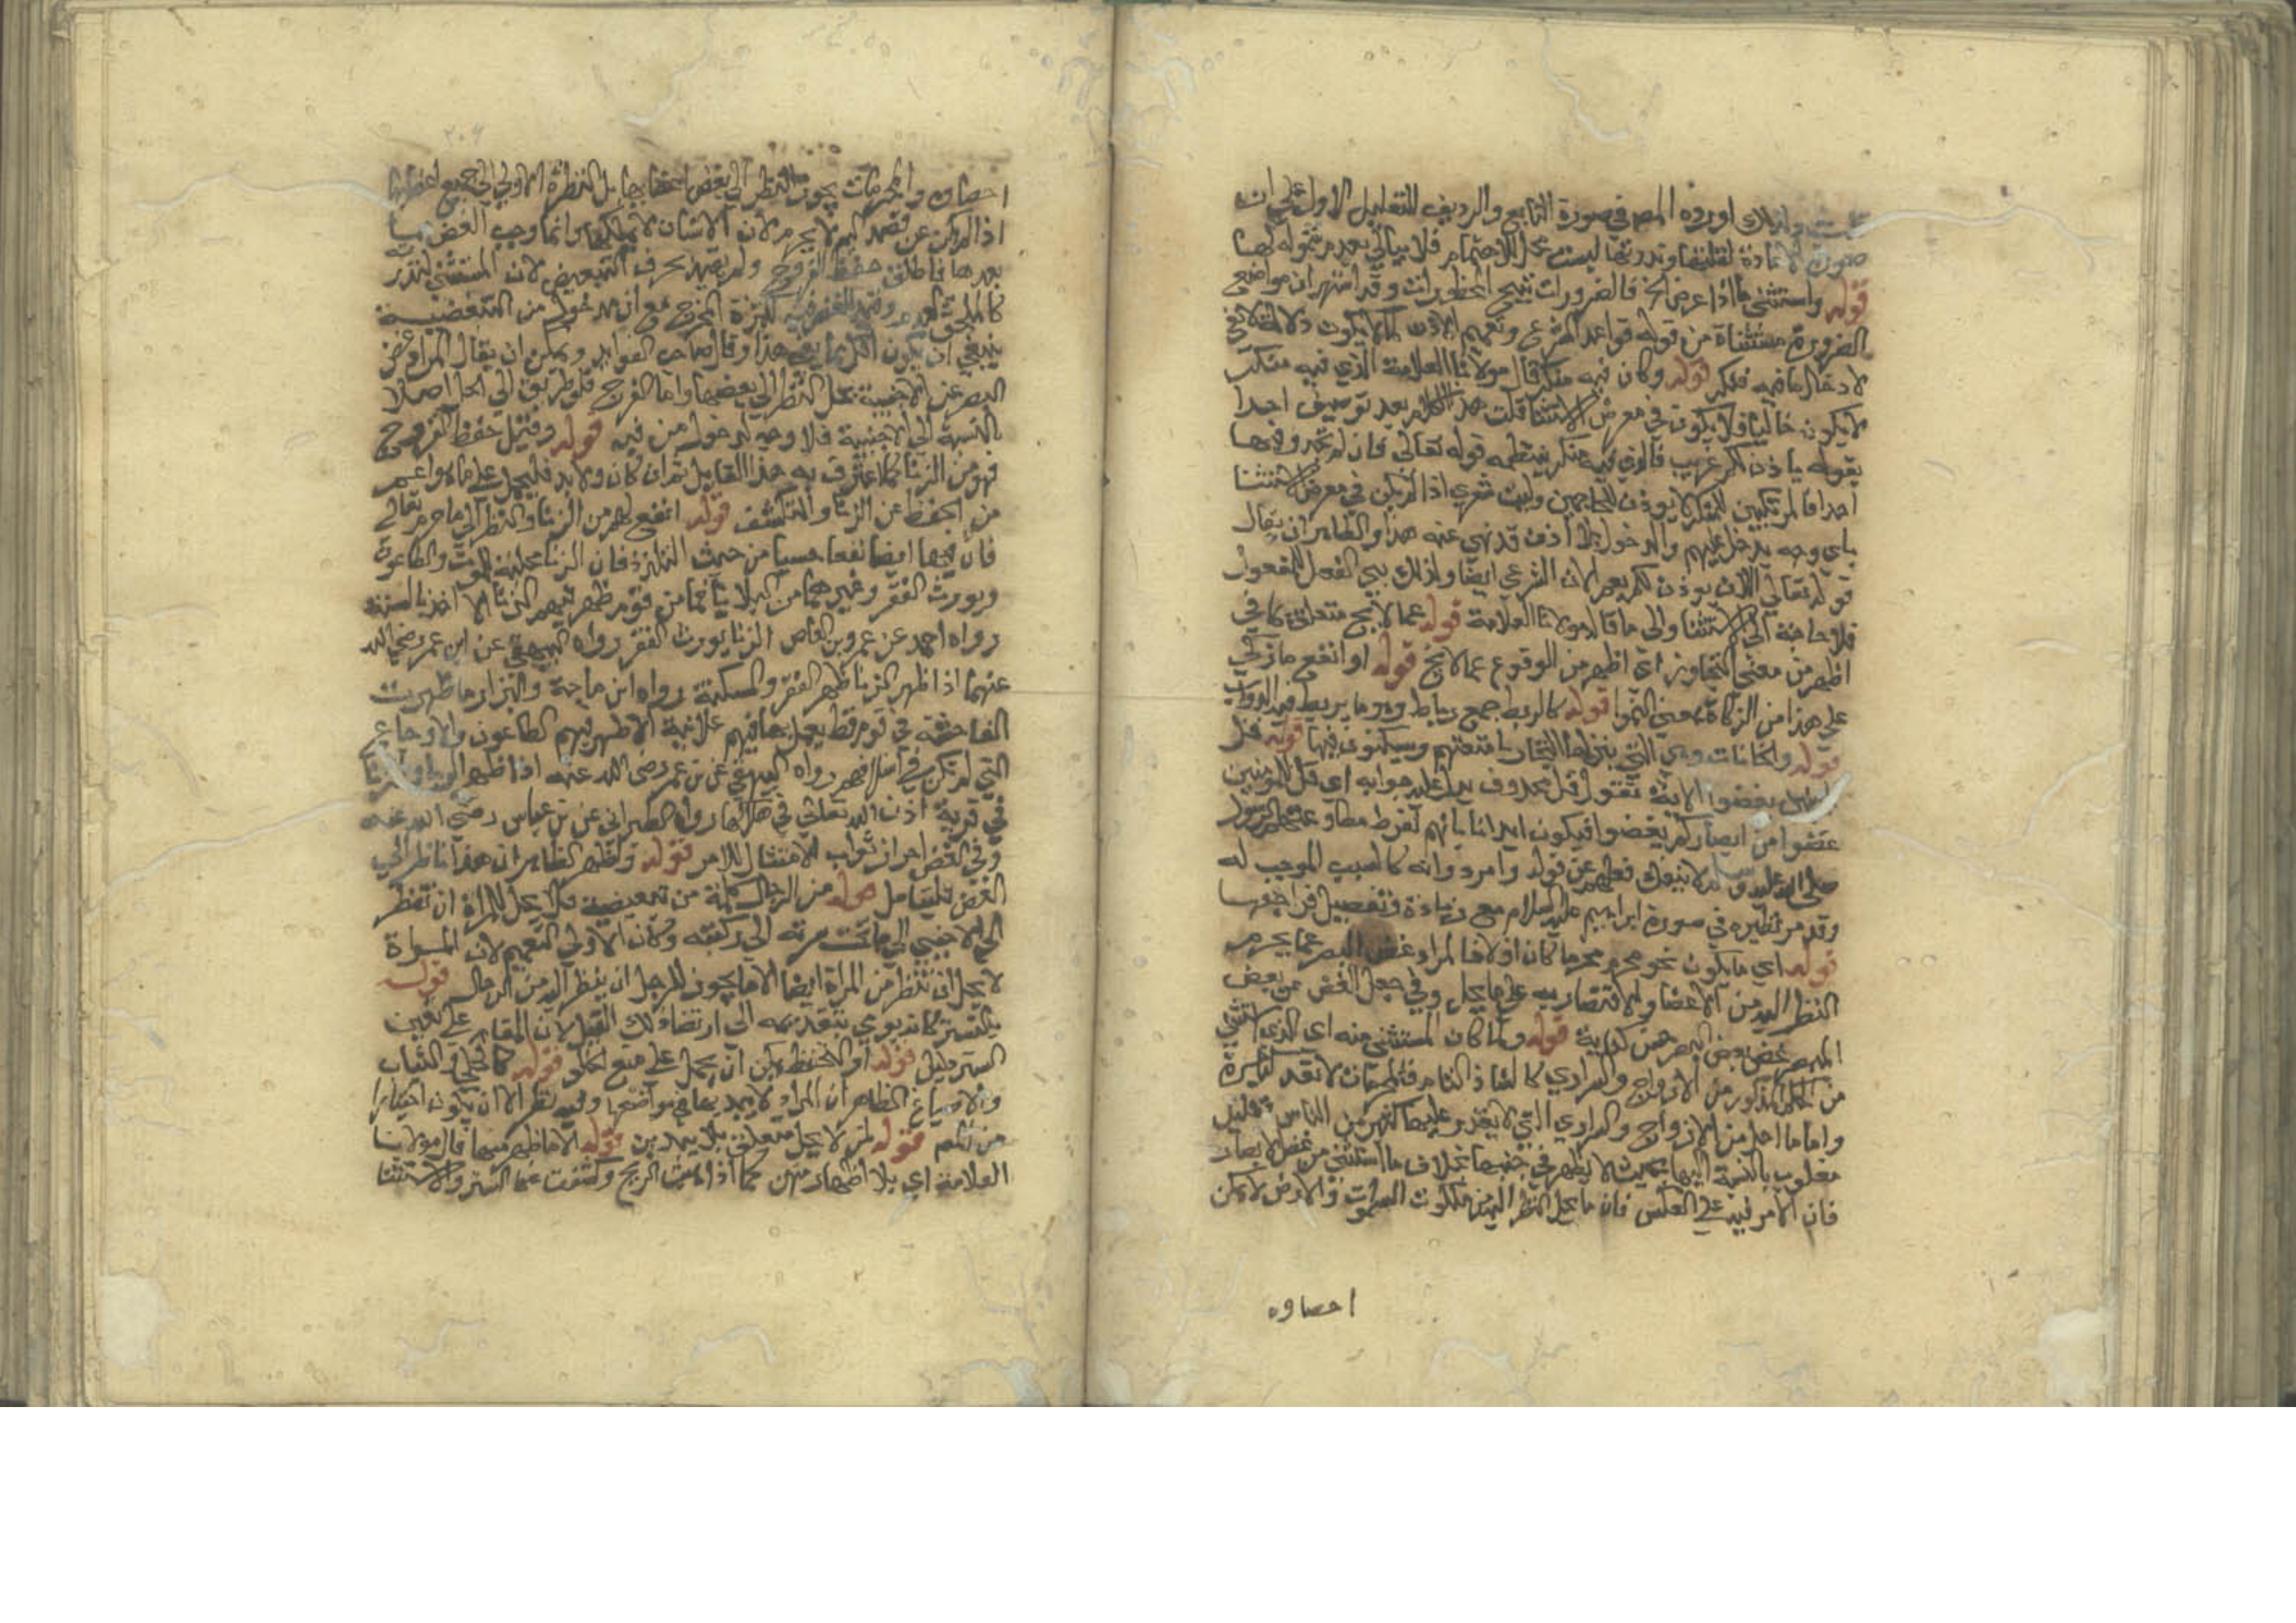 ولذلك اورده المص في صورة التابع والرديف للتعليل الاول على ان
صورة الاعادة لقلتها وندرتها ليست محل الاهتمام فلا يبالي بعدم شموله لها
قوله واستثنى ما اذا عرض الخ فالضرورات تبيح المحظورات وقد اشتهر ان مواضع
الضرورة مستثناة من قواعد الشرع وتعميم الاذن لا يكون دلالة
لادخال ما فيه فلكر قوله وكان فيه منكر قال مولانا العلامة الذي فيه منكر
لا يكون خاليا فلا يكون في معرض الاستثنا قلت هذا الكلام بعد توصيف احدا
بقوله ياذن لكم غريب فالذي فيه منكر ينتظمه قوله تعالى فان لم تجدوا فيها
احدا فالمرتكبين للمنكر لا يوذن وليت شعري اذا لم يكن في معرض الاستثنا
باي وجه يدخل عليهم والدخول بلا اذن قد نهي عنه هذا والظاهر ان يقال
قوله تعالى يوذن لكم يعم الاذن الشرعي ايضا ولذلك بني الفعل للمفعول
فلا حاجة الى الاستثنا والى ما قال مولانا العلامة قوله عما لا يخ متعلقة كافي
اظهر من معنى التجاوز اي اظهر من الوقوع عما لا يخ قوله او انفع ما زكى
على هذا من الزكاة بمعنى النموا قوله كالربط جمع رباط وهو ما يربط فيه الدواب
قوله والخانات وهي التي ينزلها التجار بامتعتهم ويسكنون فيها قوله قل
يغضوا الاية مقول قل محذوف يدل عليه جوابه اي قل للمومنين
غضوا من ابصاركم يغضوا فيكون ايذانا بانهم لفرط مطاوعتهم الرسول
صلى الله عليه وسلم لا ينفك فعلهم عن قوله وامره وانه كالسبب الموجب له
وقد مر نظيره في صورة ابراهيم عليه السلام مع زيادة وتفصيل فراجعها
قوله اي ما يكون نحو محرم محرما كان اولا فالمراد غض البصر عما يحرم
النظر اليه من الاعضا والاقتصار به على ما يحل وفي جعل الغض عن بعض
المبصر غض بعض البصر حسن كناية قوله ولما كان المستثنى منه اي الذي استثني
من الحكم المذكور من الازواج والسراري كالشاذ النادر فالمحرمات لا تعد كثيرة
واما ما احل من الازواج والسراري التي لا يقدر عليها كثير من الناس قليل
مغلوب بالنسبة اليها بحيث لا يظهر في جنبها بخلاف ما استثني من غض الابصار
فان الامر فيه على العكس فان ما يحل النظر اليه من ملكوت السموات والارض لا يمكن
احصاوه
احصاوه والمحرمات يجوز النظر الى بعض اعضايها بل النظرة الاولى الى جميع اعضايها
اذا لم يكن عن قصد لم لا يحرم لان الانسان لا يملكها وانما وجب الغض
بعدها فاطلق حفظ الفروج ولم يقيد بحرف التبعيض لان المستثنى لندره
كالملحق بالعدم وقيد الغض به لكثرة الخرج مع ان مدخول من التبعضية
ينبغي ان يكون اقل مما بقي هذا وقال صاحب الفوايد ويمكن ان يقال المراد غض
البصر عن الاجنبية يحل النظر الى بعضها واما الفرج فلا طريق الى الحل اصلا
بالنسبة الى الاجنبية فلا وجه لدخول من فيه قوله وقيل حفظ الفروج
فهو من الزنا كما اعترف به هذا القايل ثم ان كان ولا بد فليحمل على ما هو اعم
من الحفظ عن الزنا والتكشف قوله انفع لهم من الزنا والنظر الى ما حرم تعالى
فان فيها ايضا نفعا حسيا من حيث التلذذ فان الزنا مجلبة الموت والطاعون
ويورث الفقر وغيرهما من البلايا فما من قوم ظهر فيهم الزنا الا اخذوا بالسنة
رواه احمد عن عمرو بن العاص الزنا يورث الفقر رواه البيهقي عن ابن عمر رضي الله
عنهما اذا ظهر الزنا ظهر الفقر والمسكنة رواه ابن ماجة والبزار ما ظهرت
الفاحشة في قوم قط يعمل بها فيهم علانية الا ظهر فيهم الطاعون والاوجاع
التي لم تكن في اسلافهم رواه البيهقي عن بن عمر رضي الله عنه اذا ظهر الربا والزنا
في قرية اذن الله تعالى في هلاكها رواه الطبراني عن بن عباس رضي الله عنه
وفي الغض احراز ثواب الامتثال للامر قوله واظهر الظاهر ان هذا ناظر الى
الغض فليتامل قوله من الرجال كلمة من تبعيضية فلا يحل للمراة ان تنظر
الى الاجنبي الى ما تحت سرته الى ركبته وكان الاولى التعميم لان المراة
لا يحل ان تنظر من المراة ايضا الا ما يجوز للرجل ان ينظر اليه من الرجال قوله
بالتستر كانه يومي بتقديمه الى ارتضا ذلك القيل لان المقام على تعين
الستر دليل قوله او التحفظ يمكن ان يحمل على منع الخلو قوله كالحلي والثياب
والاصباغ الظاهر ان المراد لا يبدينها في مواضعها وفيه نظر الا ان يكون اختيارا
من تكلم قوله لمن لا يحل متعلق بلا يبدين قوله الا ما ظهر منها قال مولانا
العلامة اي بلا اظهار منهن كما اذا هبت الريح وكشفت عنها الستر والاستثنا